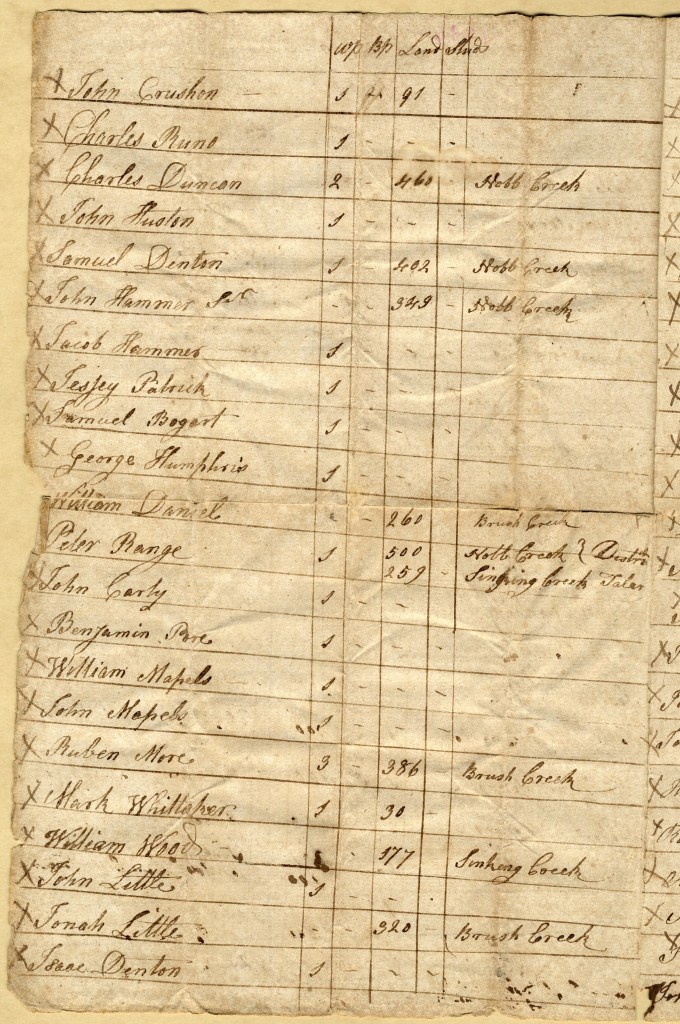 wp Bp Land Studs
X John Crushon - 1 91 -
X Charles Runo 1 - - -
X Charles Duncan 2 - 460 - Nobb Creek
X John Huston 1 - - -
X Samuel Denton 1 - 492 - Nobb Creek
X John Hammer Snr - - 349 - Nobb Creek
X Jacob Hammer 1 - - -
X Jessey Patrick 1 - - -
X Samuel Bogart 1 - - -
X George Humphris 1 - - -
William Daniel - 260 Brush Creek
Peter Range 1 500 Nobb Creek }
259 Sinking Creek
X John Carly 1 - -
X Benjamin Pore 1 - - -
X William Mapels 1 - - -
X John Mapels 1 - - -
X Ruben More 3 - 386 Brush Creek
X Mark Whittaker 1 - 30 -
X William Wood - 177 Sinking Creek
X John Little 1 - - -
X Jonah Little - - 320 - Brush Creek
X Isaac Denton 1 - - -